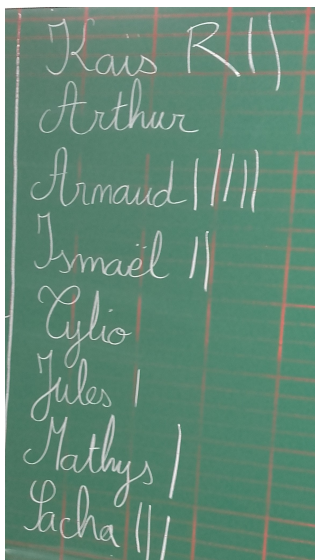 Kaïs R||
Arthur
Arnaud |||||
Ismaël ||
Tylio
Jules |
Mathys |
Sacha |||